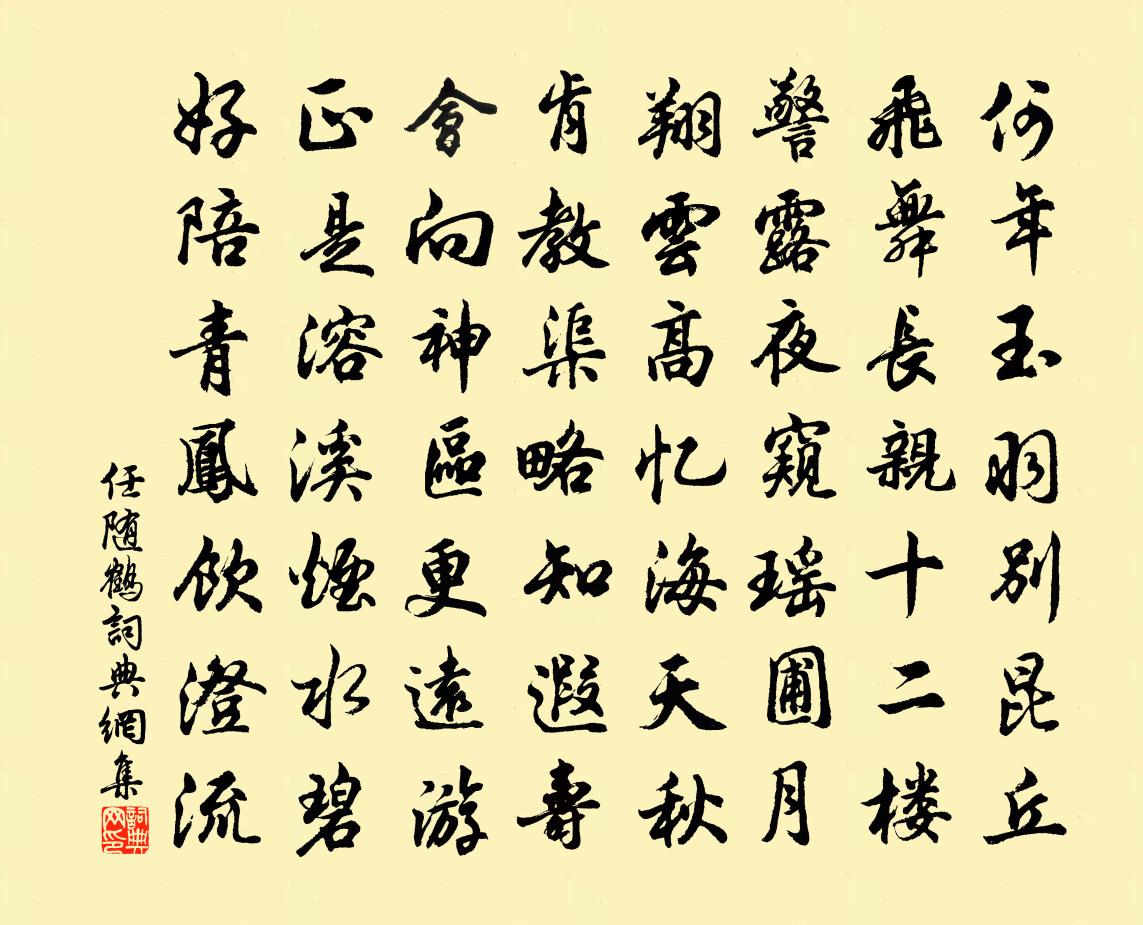 何年玉羽别昆丘
飛舞長親十二楼
警露夜窺瑶圃月
翔雲高忆海天秋
肯教渠略知遐壽
會向神區更遠游
正是溶溪煙水碧
好陪青鳳飲澄流
任随鶴詞典網集
詞典
网印